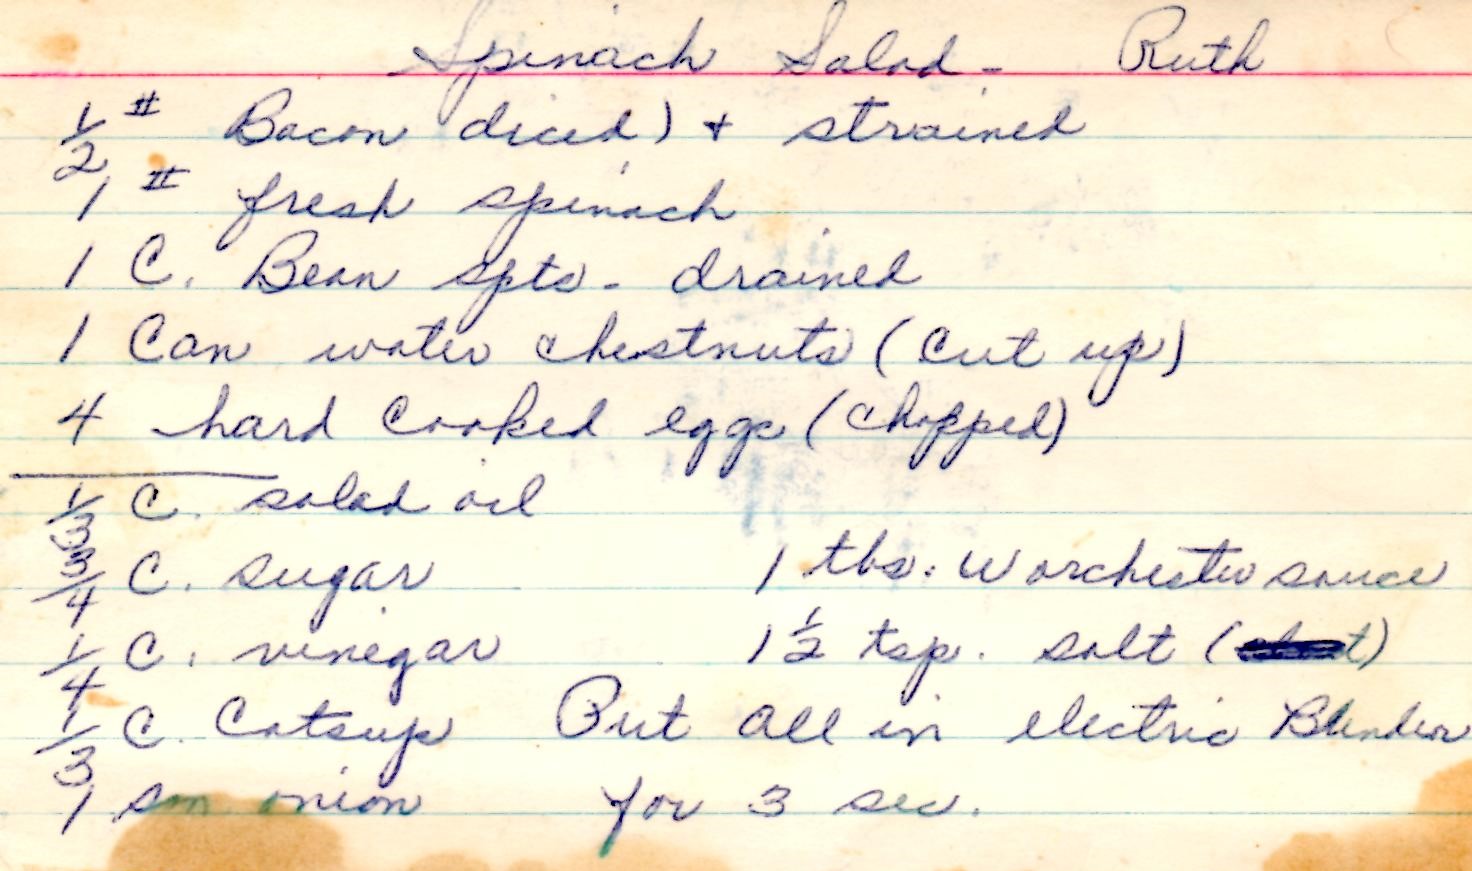 Spinach Salad - Ruth
1/2 # Bacon diced) + strained
1 # fresh spinach
1 C. Bean spts - drained
1 Can water chestnuts (cut up)
4 hard cooked eggs (chopped)
1/3 C. salad oil
3/4 C. sugar
1 tbs. Worchester sauce
1/4 C. vinegar
1 1/2 tsp. salt
1/3 C. Catsup Put all in electric Blender
1 sm onion for 3 sec.